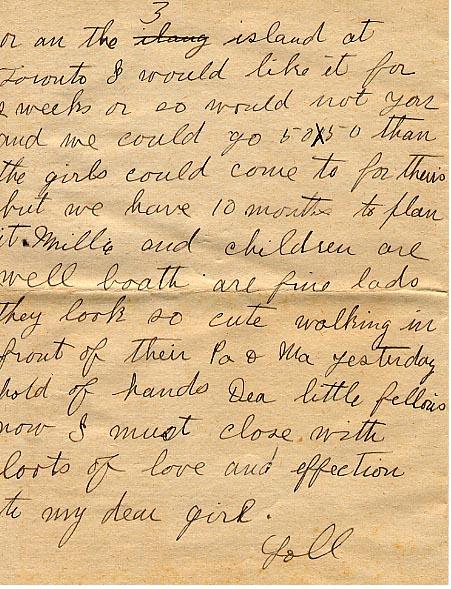 3
or an the ilang island at
Toronto I would like it for
2 weeks or so would not you
and we could go 50X50 than
the girls could come to for theirs
but we have 10 months to plan
it. Millie and children are
well boath are fine lads
they look so cute walking in
front of their Pa & Ma yesturday
hold of hands Dea little fellows
now I must close with
loots of love and effection
to my dear girl.